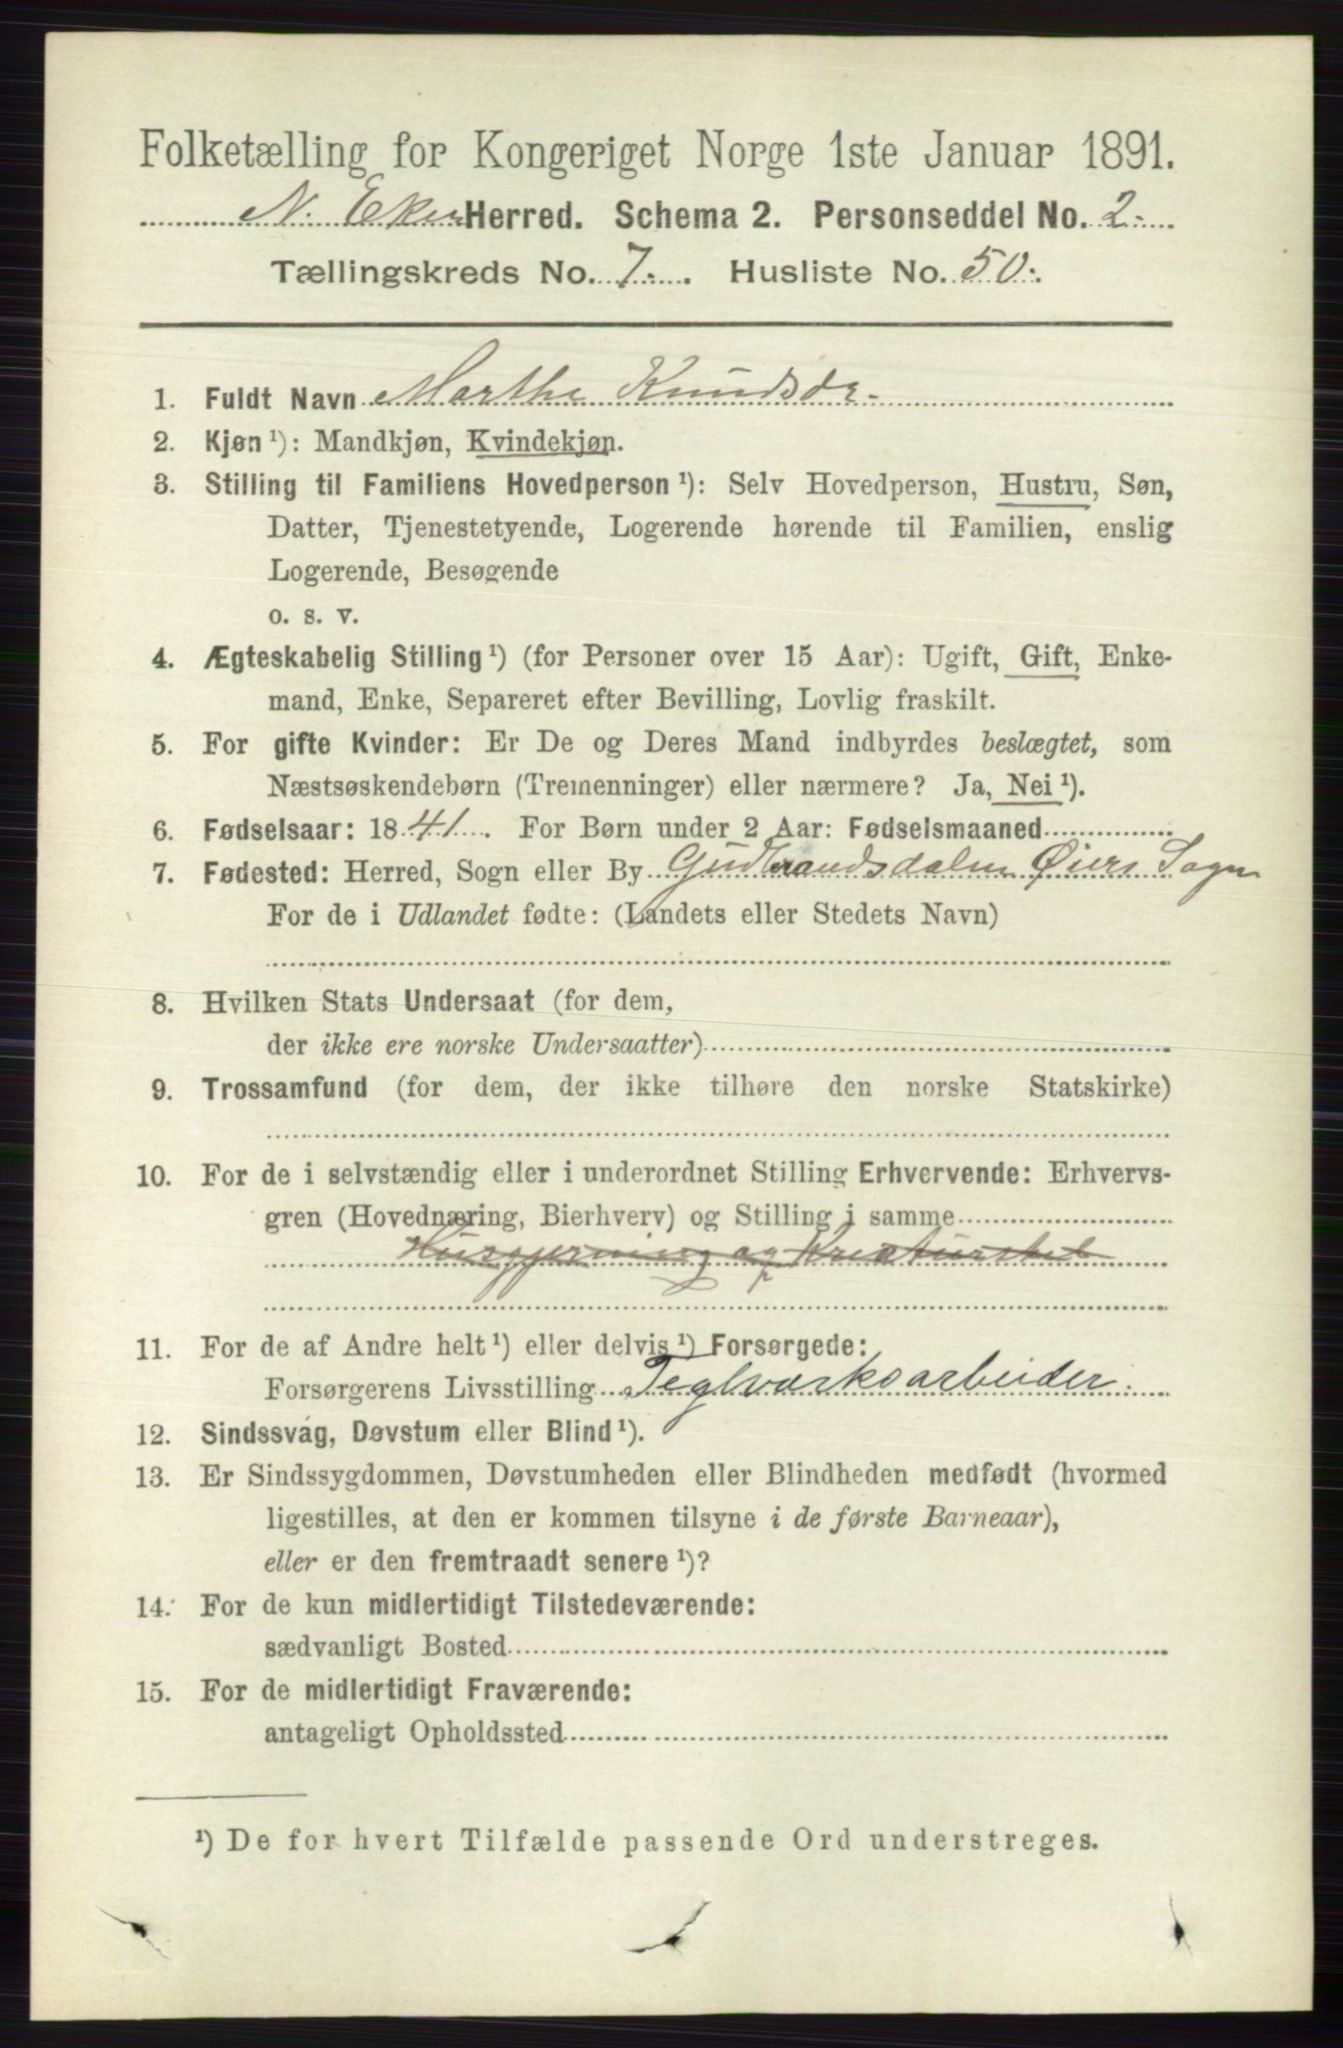 Folketælling for Kongeriget Norge 1ste Januar 1891.
N. Eker Herred. Schema 2. Personseddel No. 2.
Tællingskreds No. 7. Husliste No. 50.
1. Fuldt Navn Marthe Knudsdr.
2. Kjøn ¹): Mandkjøn, Kvindekjøn.
3. Stilling til Familiens Hovedperson ¹): Selv Hovedperson, Hustru, Søn,
Datter, Tjenestetyende, Logerende hørende til Familien, enslig
Logerende, Besøgende
o. s. v.
4. Ægteskabelig Stilling ¹) (for Personer over 15 Aar): Ugift, Gift, Enke-
mand, Enke, Separeret efter Bevilling, Lovlig fraskilt.
5. For gifte Kvinder: Er De og Deres Mand indbyrdes beslægtet, som
Næstsøskendebørn (Tremenninger) eller nærmere? Ja, Nei ¹).
6. Fødselsaar: 1841. For Børn under 2 Aar: Fødselsmaaned
7. Fødested: Herred, Sogn eller By Gudbrandsdalen Øiers Sogn
For de i Udlandet fødte: (Landets eller Stedets Navn)
8. Hvilken Stats Undersaat (for dem,
der ikke ere norske Undersaatter)
9. Trossamfund (for dem, der ikke tilhøre den norske Statskirke)
10. For de i selvstændig eller i underordnet Stilling Erhvervende: Erhvervs-
gren (Hovednæring, Bierhverv) og Stilling i samme
Husgjerning og Kreaturstel
11. For de af Andre helt ¹) eller delvis ¹) Forsørgede:
Forsørgerens Livsstilling Teglværksarbeider.
12. Sindssvag, Døvstum eller Blind ¹).
13. Er Sindssygdommen, Døvstumheden eller Blindheden medfødt (hvormed
ligestilles, at den er kommen tilsyne i de første Barneaar),
eller er den fremtraadt senere ¹)?
14. For de kun midlertidigt Tilstedeværende:
sædvanligt Bosted
15. For de midlertidigt Fraværende:
antageligt Opholdssted
¹) De for hvert Tilfælde passende Ord understreges.